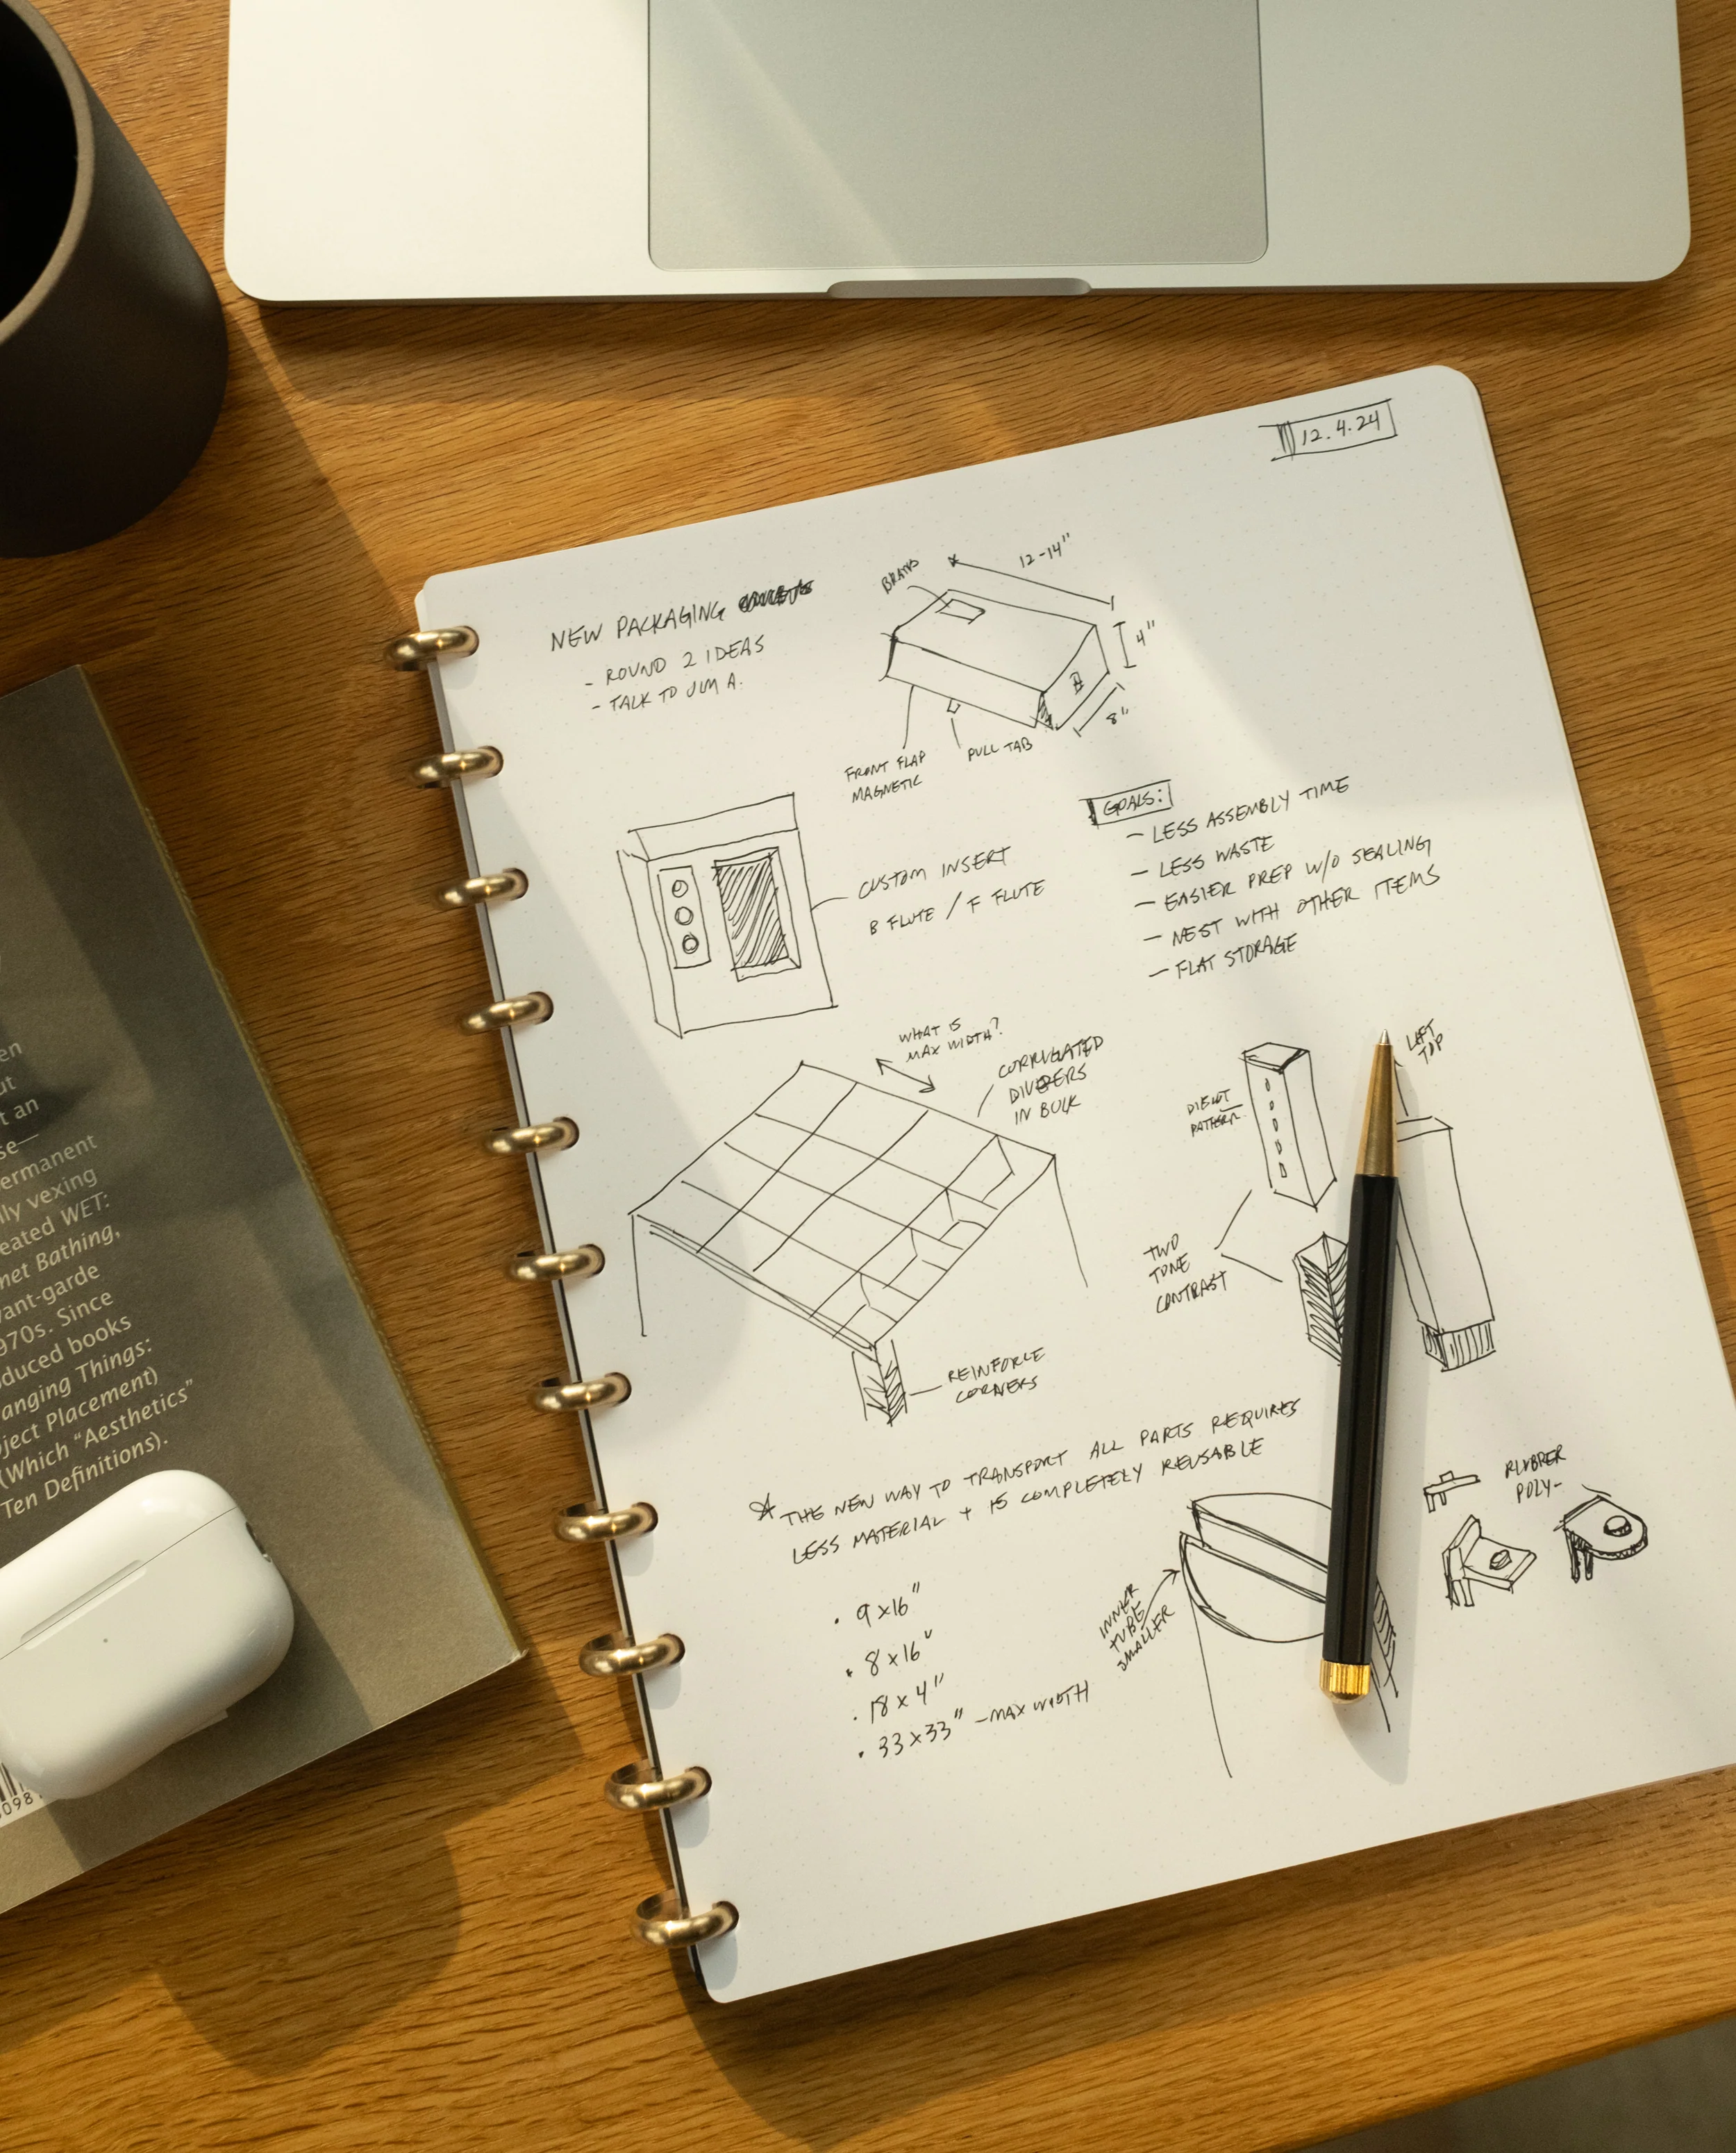 12.4.24
NEW PACKAGING
- ROUND 2 IDEAS
- TALK TO JIM A.
BRAND
12-14"
4"
8"
FRONT FLAP
MAGNETIC
PULL TAB
CUSTOM INSERT
B FLUTE / F FLUTE
GOALS:
- LESS ASSEMBLY TIME
- LESS WASTE
- EASIER PREP W/O SEALING
- NEST WITH OTHER ITEMS
- FLAT STORAGE
WHAT IS
MAX WIDTH?
CORRUGATED
DIVIDERS
IN BULK
REINFORCE
CORNERS
DIECUT
PATTERN
LIFT
TOP
TWO
TONE
CONTRAST
THE NEW WAY TO TRANSPORT ALL PARTS REQUIRES
LESS MATERIAL + IS COMPLETELY REUSABLE
• 9x16"
• 8x16"
• 18x4"
• 33x33" - MAX WIDTH
INNER
TUBE
SMALLER
RUBBER
POLY-
en
ut
t an
se—
ermanent
lly vexing
eated WET:
met Bathing,
vant-garde
970s. Since
duced books
anging Things:
ject Placement)
(Which "Aesthetics"
Ten Definitions).